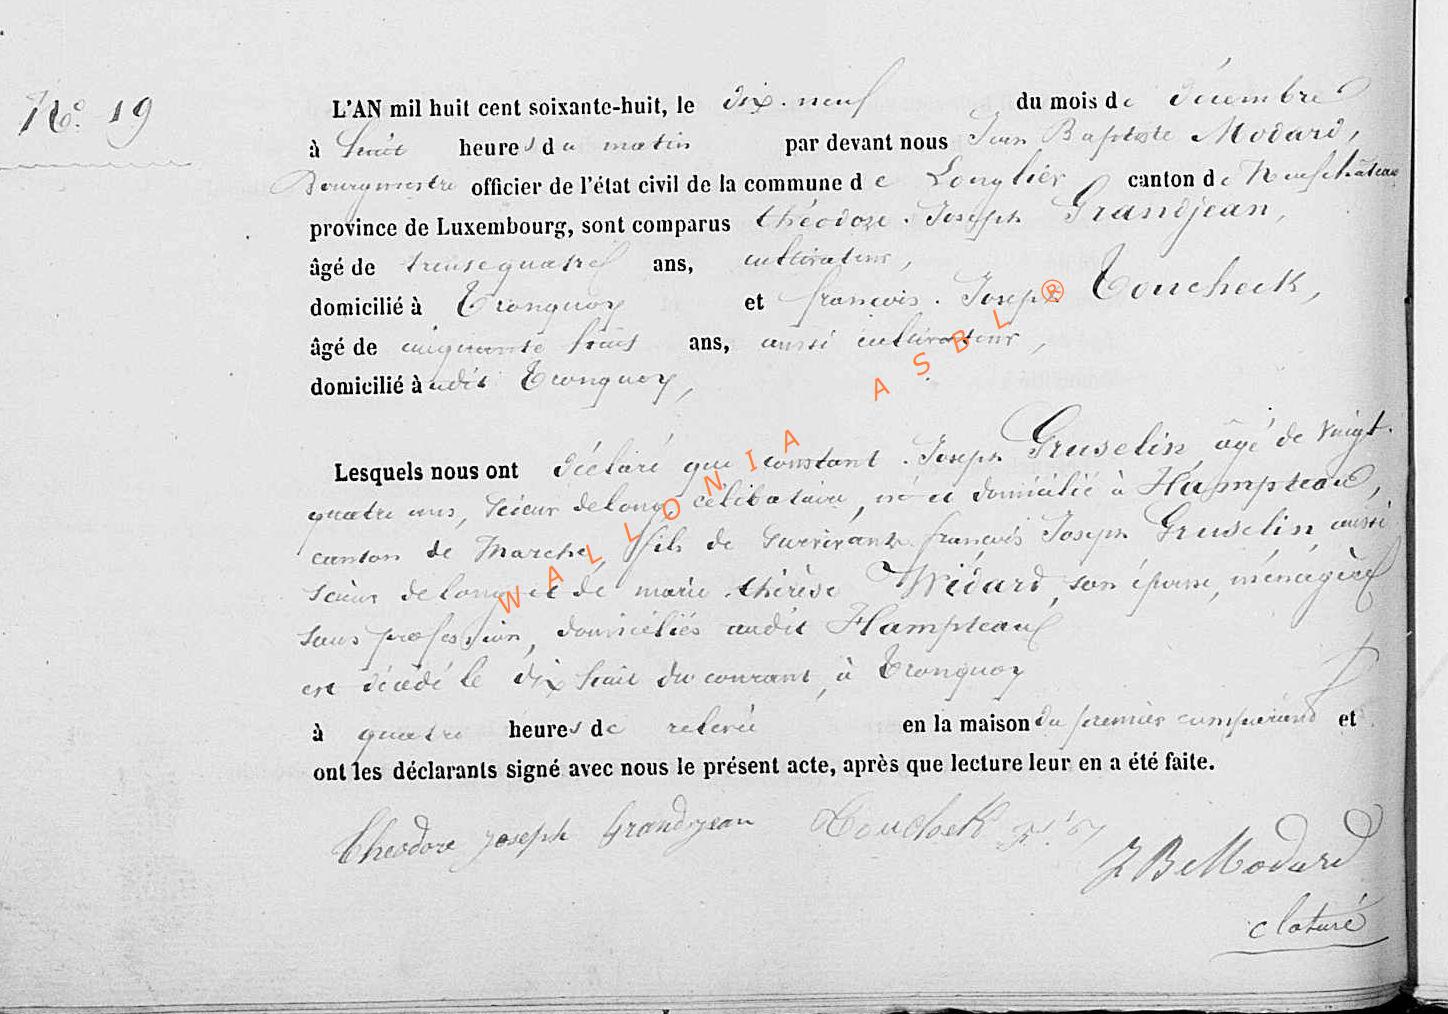 No. 19
L'AN mil huit cent soixante-huit, le dix-neuf du mois de décembre
à huit heures du matin par devant nous Jean Baptiste Modard,
Bourgmestre officier de l'état civil de la commune de Longlier canton de Neufchâteau
province de Luxembourg, sont comparus théodore Joseph Grandjean,
âgé de trente quatre ans, cultivateur,
domicilié à Tronquoy et françois Joseph Toucheck,
âgé de cinquante huit ans, aussi cultivateur,
domicilié audit Tronquoy,
Lesquels nous ont déclaré que constant Joseph Gruselin, âgé de vingt-
quatre ans, scieur de long, célibataire, né et domicilié à Hampteau,
canton de Marche, fils de françois Joseph Gruselin, aussi
scieur de long et de marie thérèse Wédard, son épouse, ménagère
sans profession, domiciliés audit Hampteau
est décédé le dix huit du courant, à Tronquoy
à quatre heures de relevée en la maison du premier comparant et
ont les déclarants signé avec nous le présent acte, après que lecture leur en a été faite.
Theodore Joseph Grandjean Toucheck JB Modard
cloturé
WALLONIA ASBL®